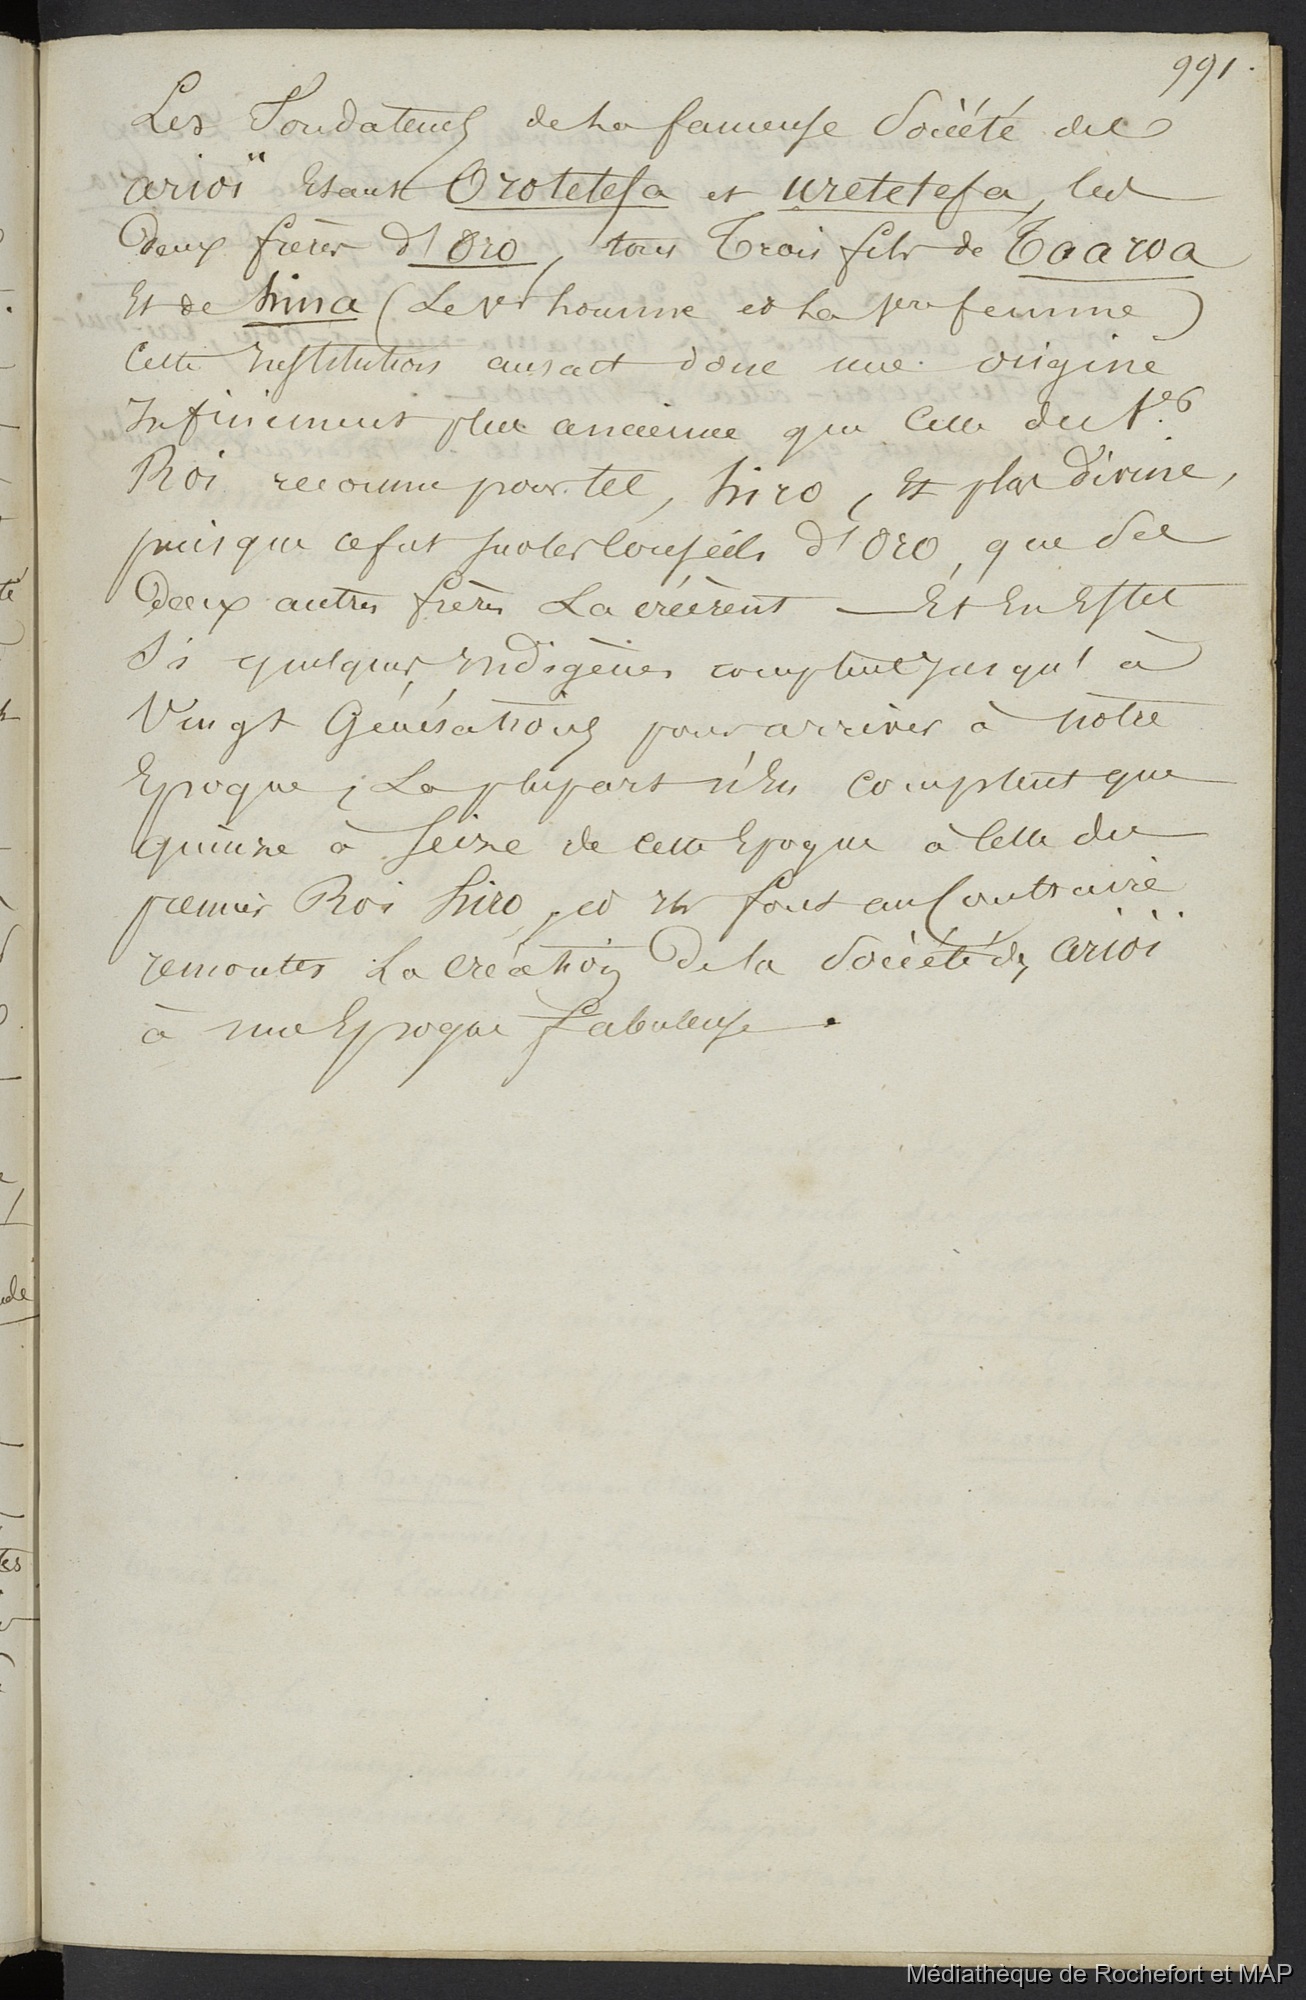 991.
Les Fondateurs de la fameuse Société des
arioï Etant Orotetefa et uretetefa, les
Deux frères d'Oro, tous Trois fils de Taaroa
Et de hina (Le 1er homme et la 1ere femme)
Cette Institution aurait donc une origine
Infiniment plus ancienne que Celle du 1er
Roi reconnu pour tel, hiro, Et plus Divine,
puisque ce fut sur les Conseils d'Oro, que Ses
Deux autres frères La créèrent — Et En Effet
Si quelques Indigènes comptent jusqu'à
Vingt Générations pour arriver à notre
Epoque, La plupart n'En comptent que
quinze à Seize de cette Epoque à Celle du
premier Roi hiro, et Ils font au Contraire
remonter La création De la Société des arioï
à une Epoque fabuleuse.
Médiathèque de Rochefort et MAP